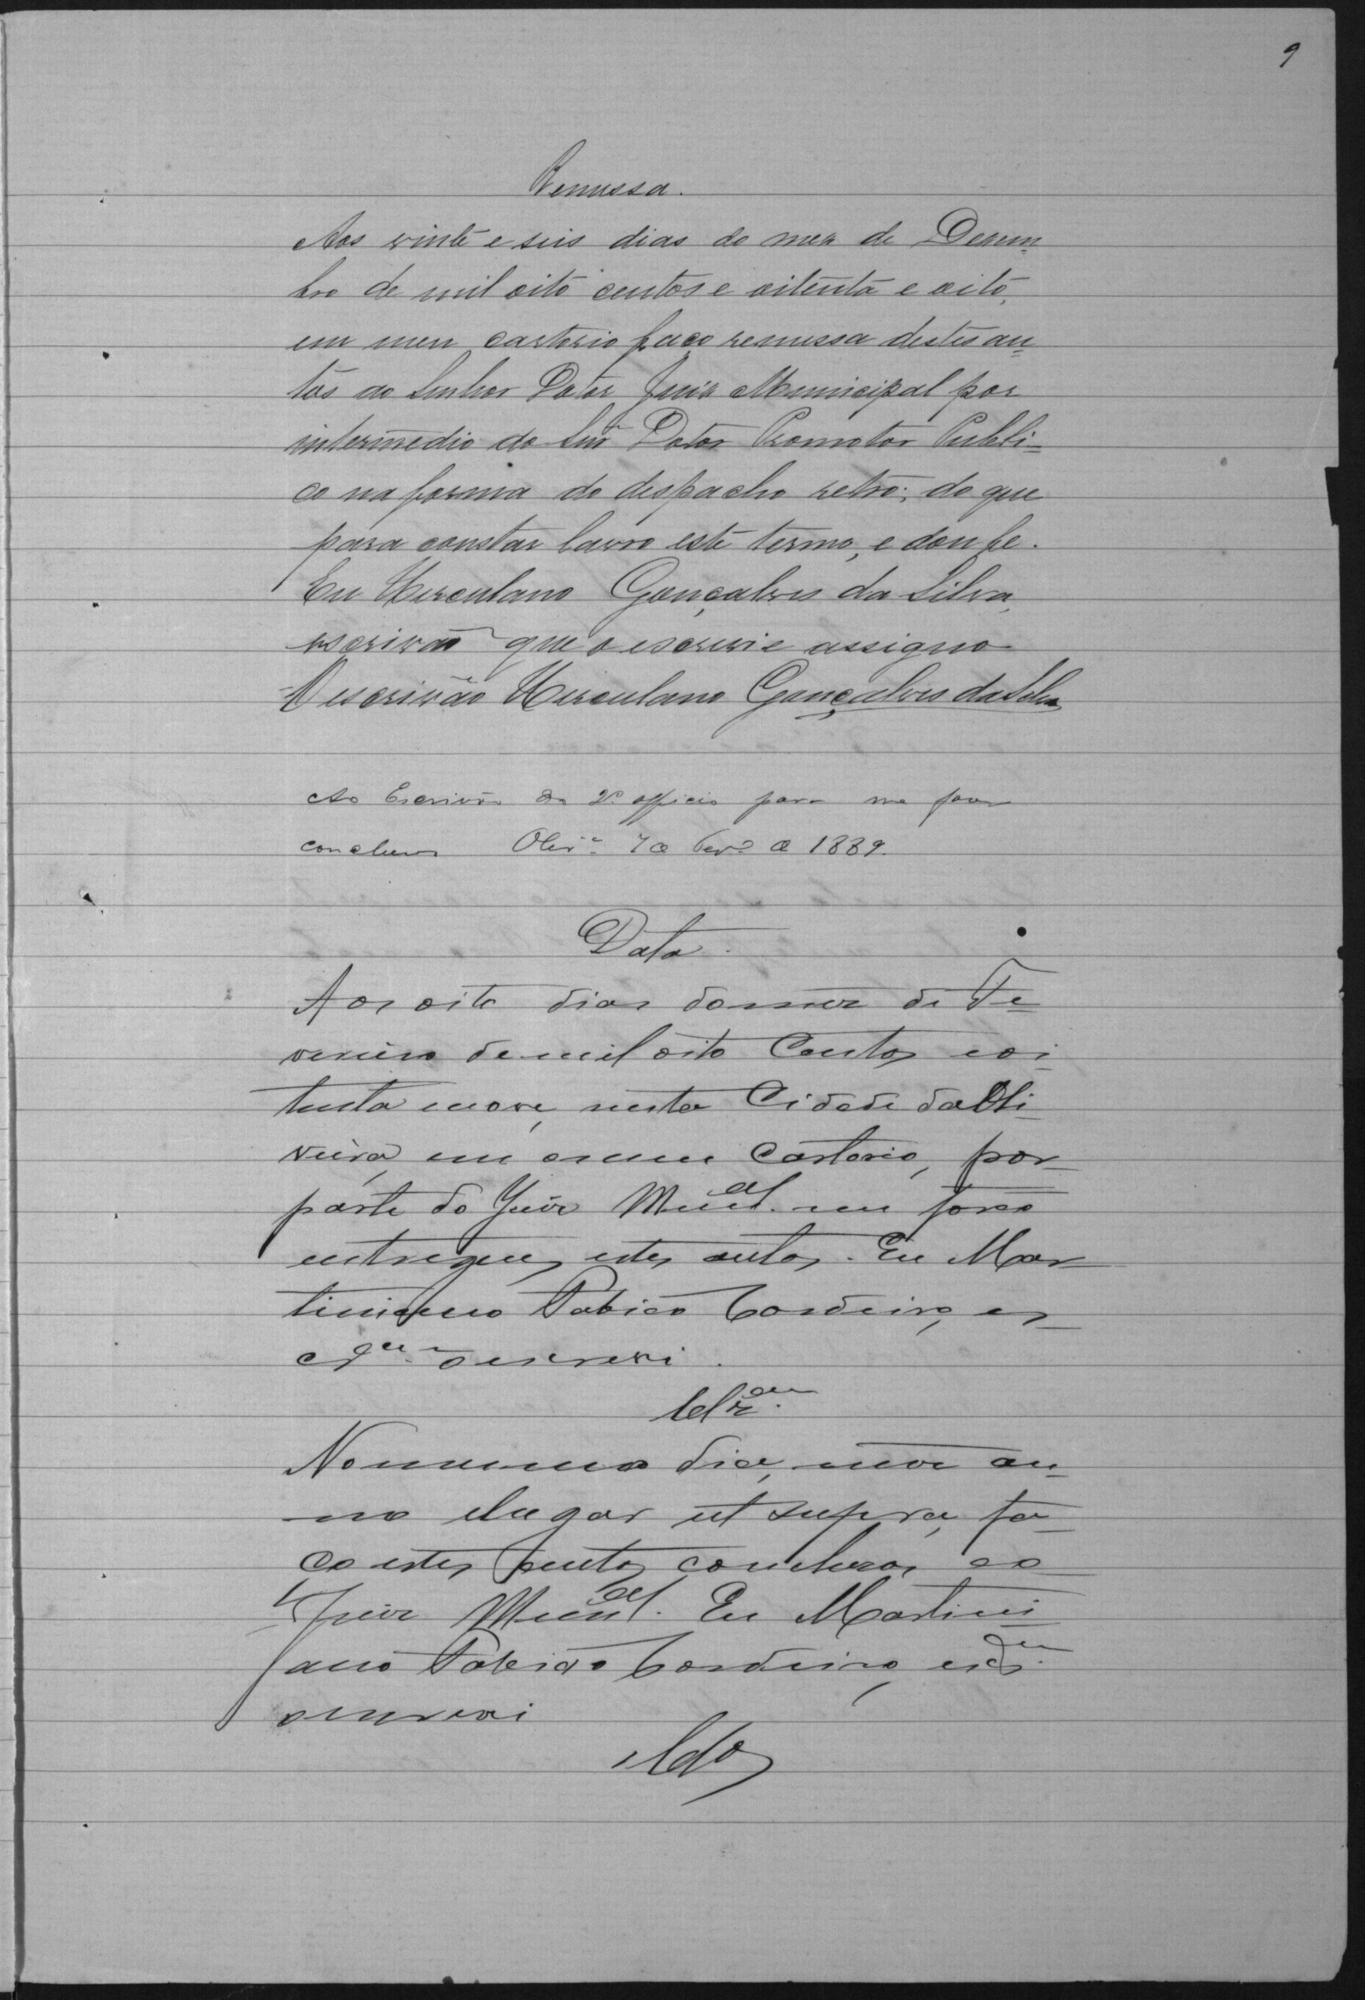 9
Remessa.
Aos vinte e seis dias do mez de Dezem
bro de mil oito centos e oitenta e oito,
em meu cartorio faço remessa destes au
tos ao Senhor Dotor Juiz Municipal por
intermedio do Snr Dotor Promotor Publi=
co na forma do despacho retro; do que
para constar lavro este termo, e dou fe.
Eu Herculano Gonçalves da Silva,
escrivão que o escrevi e assigno
O escrivão Herculano Gonçalves da Silva
Ao Escrivão do 2º officio para me fazer
conclusos Olivrª 7 de Fevº de 1889.
Data.
Aos oito dias do mez de Fe
vereiro de mil oito centos e oi
tenta e nove, nesta Cidade da Oli
veira, em o meu Cartorio, por
parte do Juiz Munal. me forão
entregues estes autos. Eu Mar
tiniano Cordeiro, es
cram o escrevi.
Clzam.
No mesmo dia, mez an
no e lugar ut supra, fa
ço estes autos conclusos ao
Juiz Munal. Eu Martini
ano Cordeiro, escram
o escrevi
Clos